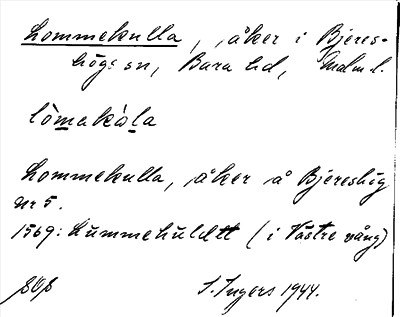 Lommekulla, åker i Bjeres-
högs sn, Bara hd, Malm. l.
lòmakàla
Lommekulla, åker å Bjereshög
nr 5.
1569: Lummehuldtt (i Västre vång)
I. Ingers 1944.